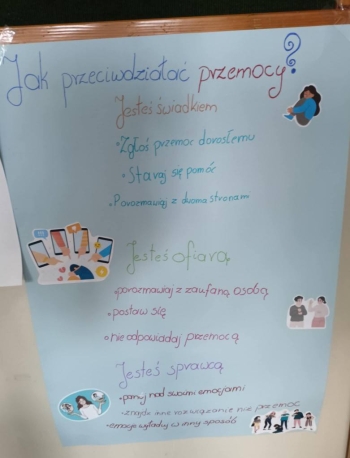 Jak przeciwdziałać przemocy?
Jesteś świadkiem
Zgłoś przemoc dorosłemu
Staraj się pomóc
Porozmawiaj z dwoma stronami
Jesteś ofiarą
porozmawiaj z zaufaną osobą
postaw się
nie odpowiadaj przemocą
Jesteś sprawcą
panuj nad swoimi emocjami
znajdź inne rozwiązanie niż przemoc
emocje wyładuj w inny sposób